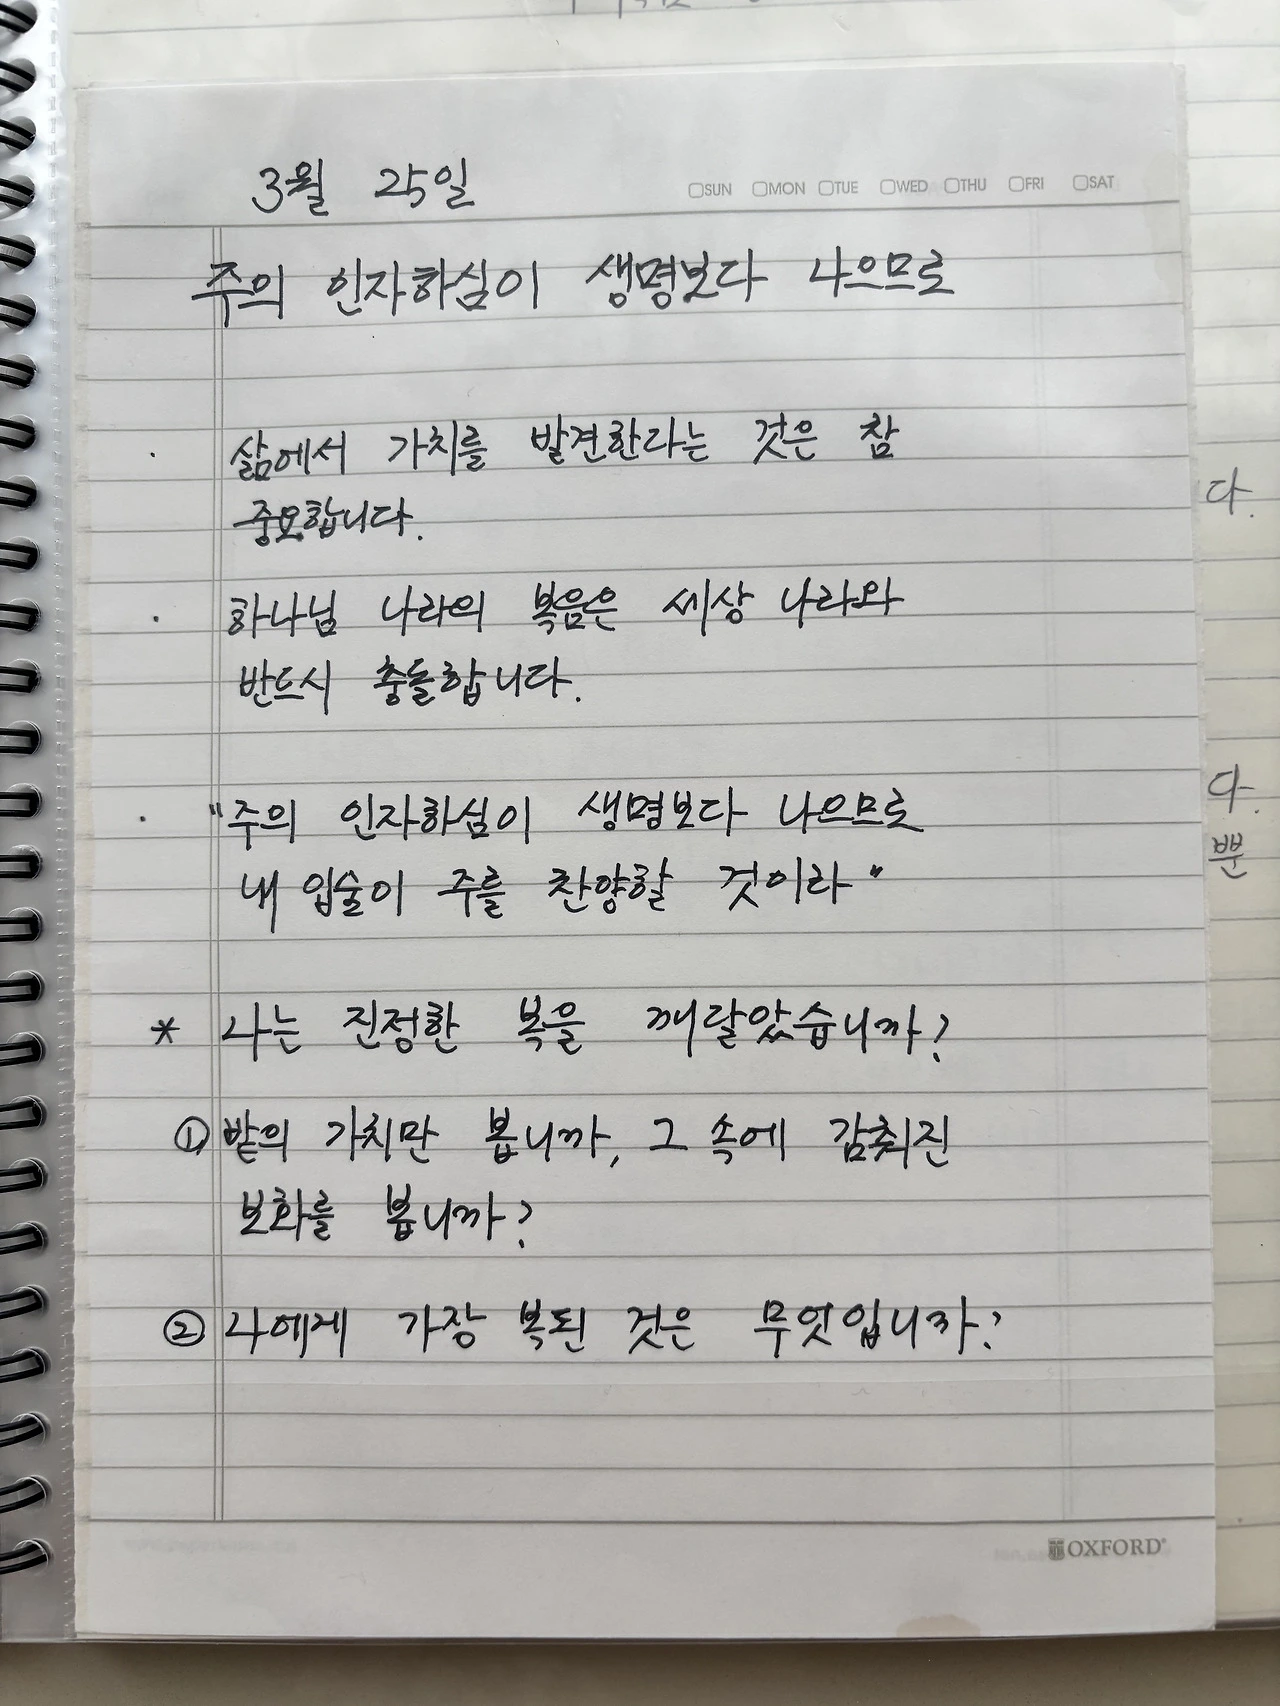 3월 25일
□SUN □MON □TUE □WED □THU □FRI □SAT
주의 인자하심이 생명보다 나으므로
· 삶에서 가치를 발견한다라는 것은 참
중요합니다.
· 하나님 나라의 복음은 세상 나라와
반드시 충돌합니다.
· "주의 인자하심이 생명보다 나으므로
내 입술이 주를 찬양할 것이라"
* 나는 진정한 복을 깨달았습니까?
① 밭의 가치만 봅니까, 그 속에 감춰진
보화를 봅니까?
② 나에게 가장 복된 것은 무엇입니까?
OXFORD
다.
다.
뿐